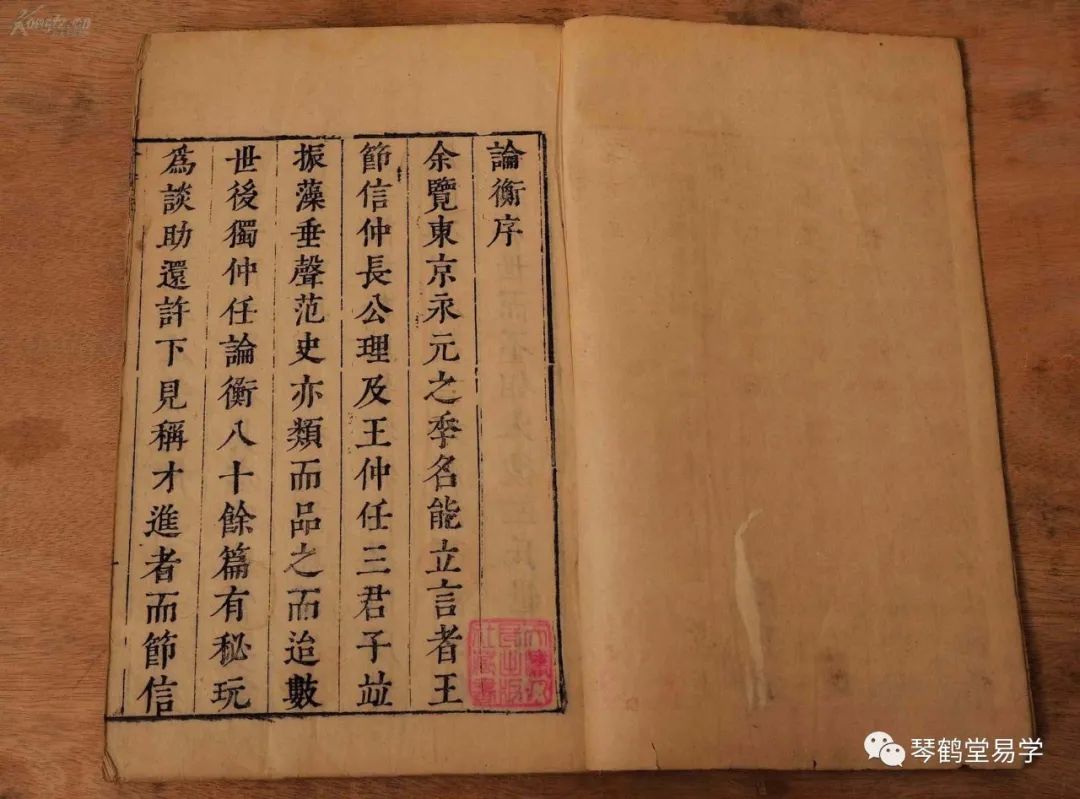 論衡序
余覽東京永元之季名能立言者王
節信仲長公理及王仲任三君子竝
振藻垂聲范史亦類而品之而迨數
世後獨仲任論衡八十餘篇有秘玩
爲談助還許下見稱才進者而節信
琴鹤堂易学